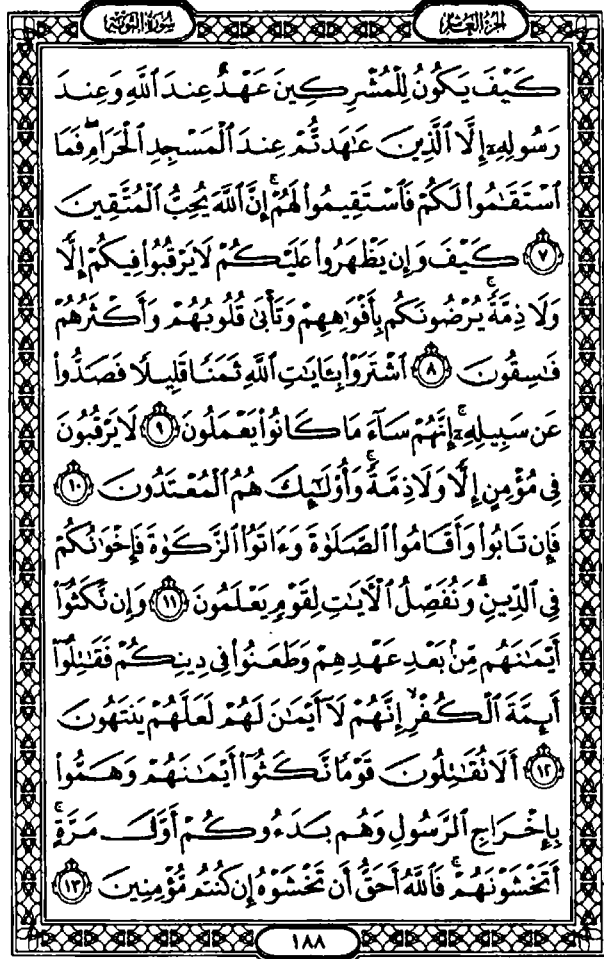 الجزء العاشر
سورة التوبة
كَيْفَ يَكُونُ لِلْمُشْرِكِينَ عَهْدٌ عِندَ ٱللَّهِ وَعِندَ
رَسُولِهِۦٓ إِلَّا ٱلَّذِينَ عَٰهَدتُّمْ عِندَ ٱلْمَسْجِدِ ٱلْحَرَامِۖ فَمَا
ٱسْتَقَٰمُوا۟ لَكُمْ فَٱسْتَقِيمُوا۟ لَهُمْۚ إِنَّ ٱللَّهَ يُحِبُّ ٱلْمُتَّقِينَ
٧ كَيْفَ وَإِن يَظْهَرُوا۟ عَلَيْكُمْ لَا يَرْقُبُوا۟ فِيكُمْ إِلًّا
وَلَا ذِمَّةًۚ يُرْضُونَكُم بِأَفْوَٰهِهِمْ وَتَأْبَىٰ قُلُوبُهُمْ وَأَكْثَرُهُمْ
فَٰسِقُونَ ٨ ٱشْتَرَوْا۟ بِـَٔايَٰتِ ٱللَّهِ ثَمَنًا قَلِيلًا فَصَدُّوا۟
عَن سَبِيلِهِۦٓۚ إِنَّهُمْ سَآءَ مَا كَانُوا۟ يَعْمَلُونَ ٩ لَا يَرْقُبُونَ
فِى مُؤْمِنٍ إِلًّا وَلَا ذِمَّةًۚ وَأُو۟لَٰٓئِكَ هُمُ ٱلْمُعْتَدُونَ ١٠
فَإِن تَابُوا۟ وَأَقَامُوا۟ ٱلصَّلَوٰةَ وَءَاتَوُا۟ ٱلزَّكَوٰةَ فَإِخْوَٰنُكُمْ
فِى ٱلدِّينِۗ وَنُفَصِّلُ ٱلْءَايَٰتِ لِقَوْمٍ يَعْلَمُونَ ١١ وَإِن نَّكَثُوٓا۟
أَيْمَٰنَهُم مِّنۢ بَعْدِ عَهْدِهِمْ وَطَعَنُوا۟ فِى دِينِكُمْ فَقَٰتِلُوٓا۟
أَئِمَّةَ ٱلْكُفْرِۙ إِنَّهُمْ لَآ أَيْمَٰنَ لَهُمْ لَعَلَّهُمْ يَنتَهُونَ
١٢ أَلَا تُقَٰتِلُونَ قَوْمًا نَّكَثُوٓا۟ أَيْمَٰنَهُمْ وَهَمُّوا۟
بِإِخْرَاجِ ٱلرَّسُولِ وَهُم بَدَءُوكُمْ أَوَّلَ مَرَّةٍۚ
أَتَخْشَوْنَهُمْۚ فَٱللَّهُ أَحَقُّ أَن تَخْشَوْهُ إِن كُنتُم مُّؤْمِنِينَ ١٣
١٨٨